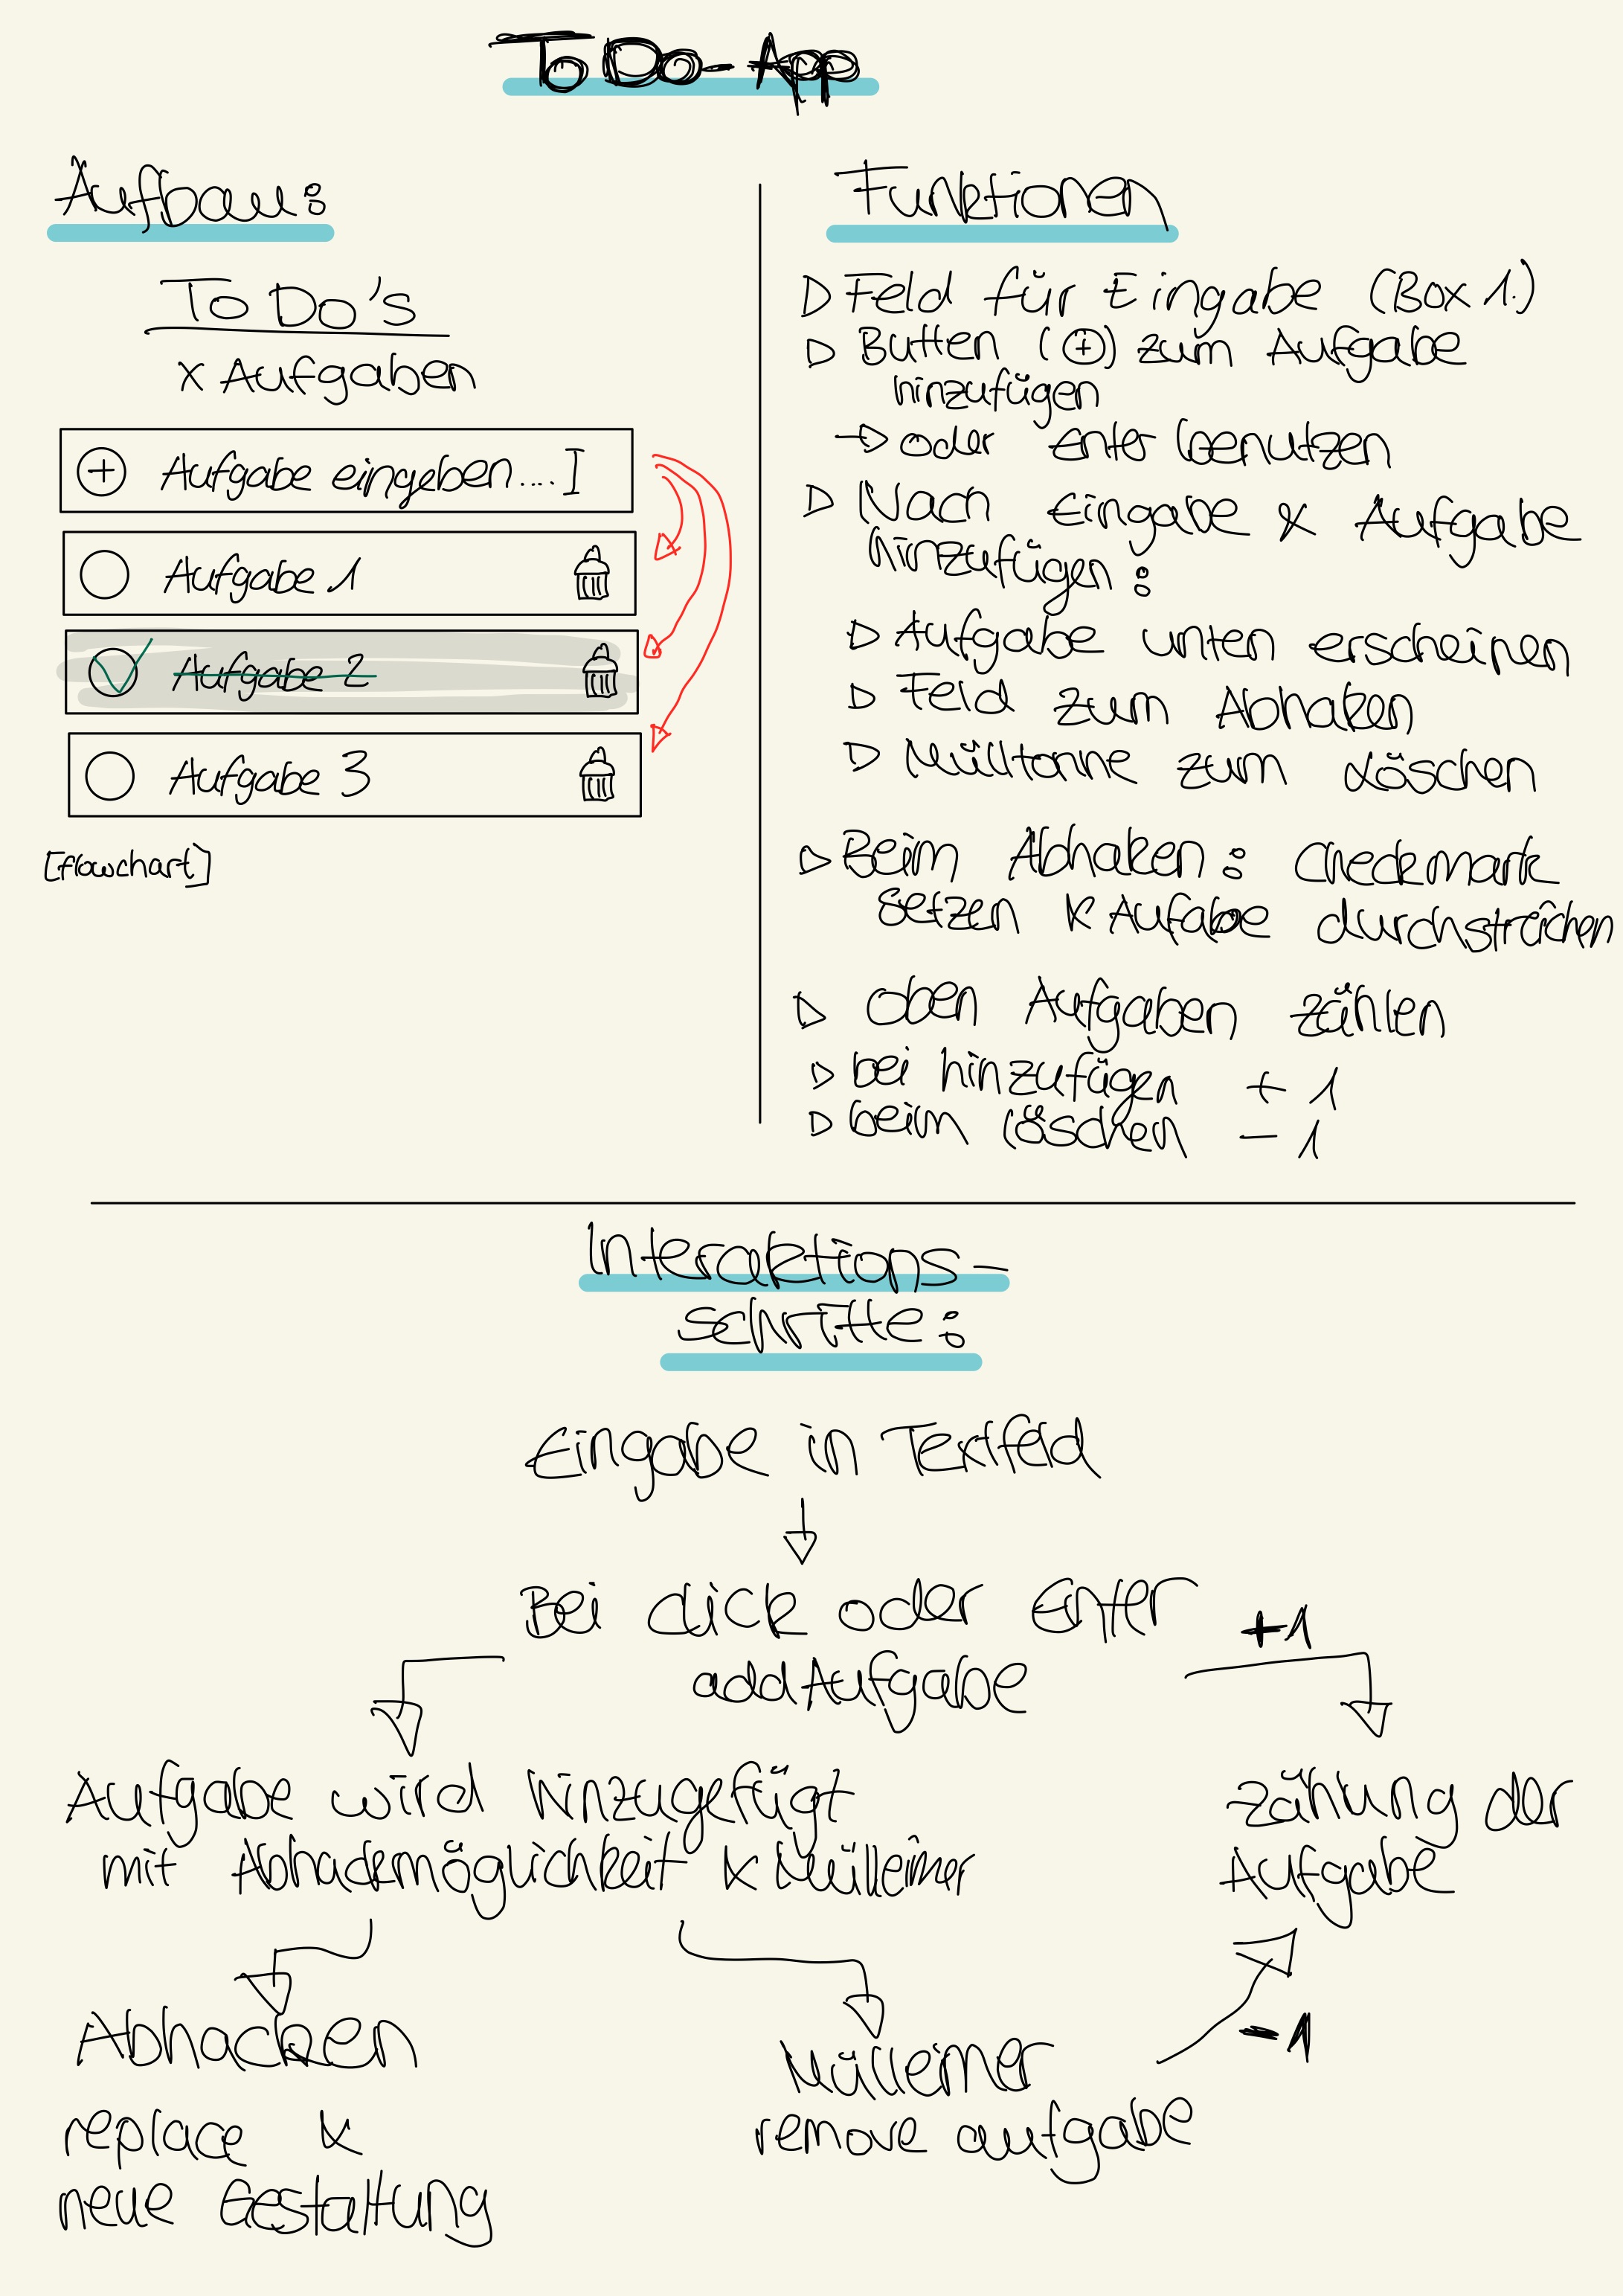 To Do-App
Aufbau:
To Do's
x Aufgaben
+ Aufgabe eingeben....]
Aufgabe 1
Aufgabe 2
Aufgabe 3
[flowchart]
Funktionen
▷ Feld für Eingabe (Box 1.)
▷ Butten (+) zum Aufgabe
hinzufügen
→ oder enter benutzen
▷ Nach Eingabe & Aufgabe
hinzufügen:
▷ Aufgabe unten erscheinen
▷ Feld zum Abhaken
▷ Mülltonne zum Löschen
▷ Beim Abhaken: Checkmark
setzen & Aufabe durchstreichen
▷ oben Aufgaben zählen
▷ bei hinzufügen + 1
▷ beim löschen - 1
Interaktions-
schritte:
Eingabe in Textfeld
Bei click oder Enter
+1
addAufgabe
Aufgabe wird hinzugefügt
mit Abhackmöglichkeit & Mülleimer
Zählung der
Aufgabe
-1
Abhacken
replace &
neue Gestaltung
Mülleimer
remove aufgabe